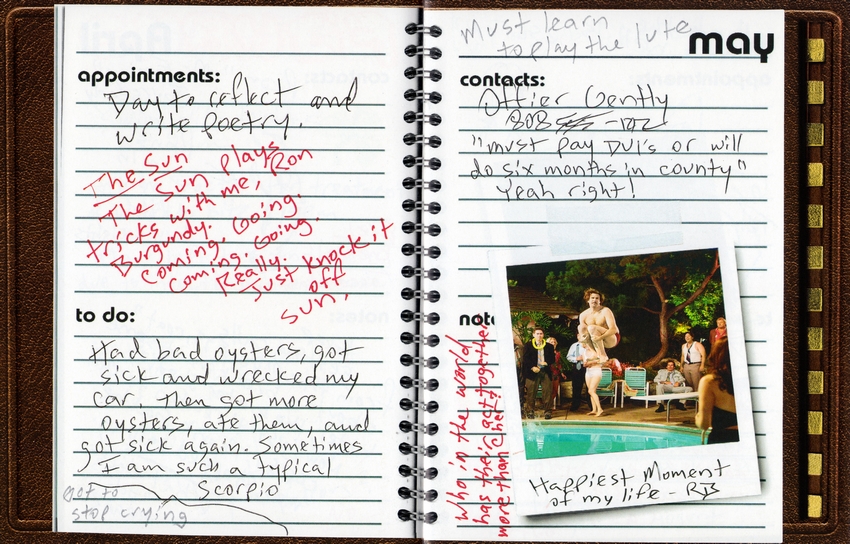 appointments:
Day to reflect and
write poetry.
The Sun
The Sun plays
tricks with me, Ron
Burgundy.
Coming. Going.
Coming. Going.
Really.
Just knock it
off
sun,
to do:
Had bad oysters, got
sick and wrecked my
car. Then got more
oysters, ate them, and
got sick again. Sometimes
I am such a typical
Scorpio
Got to
stop crying
Must learn
to play the lute
may
contacts:
Offier Gently
808
"must pay DUI's or will
do six months in county"
Yeah right!
not
Who in the world
has their act together
more than Cher?
Happiest Moment
of my life - RB